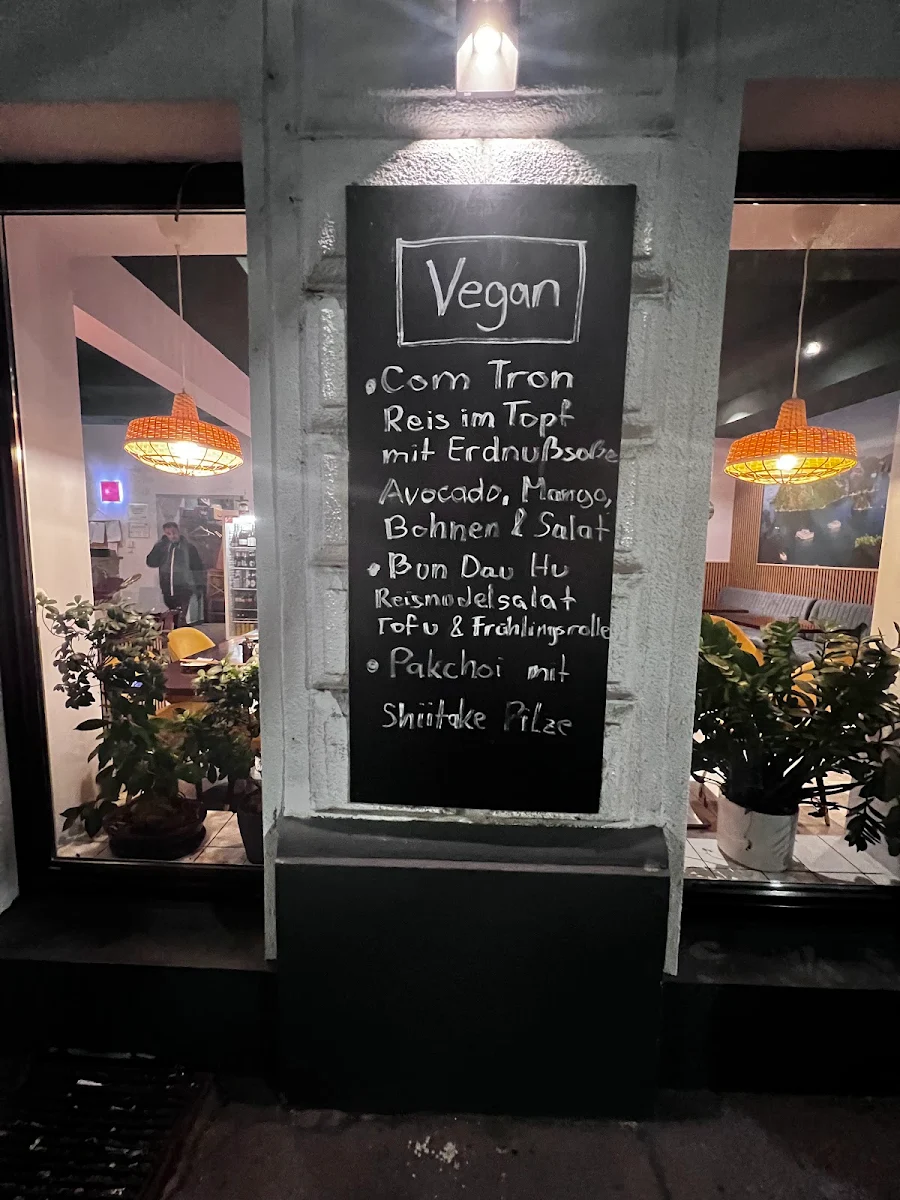 Vegan
• Com Tron
Reis im Topf
mit Erdnußsoße
Avocado, Mango,
Bohnen & Salat
• Bun Dau Hu
Reisnudelsalat
Tofu & Frühlingsrolle
• Pakchoi mit
Shiitake Pilze